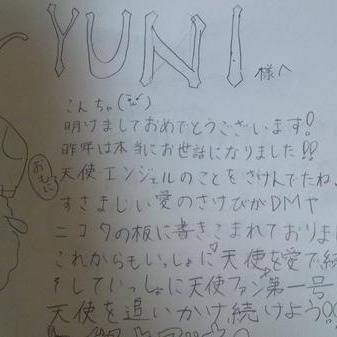 YUNI様へ
こんちゃ
明けましておめでとうございます!
昨年は本当にお世話になりました!!
おもに
天使エンジェルのことをさけんでたね、
すさまじい愛のさけびがDMや
ニコタの板に書きこまれておりま
これからもいっしょに天使を愛で続
そしていっしょに天使ファン第一号
天使を追いかけ続けよう!!